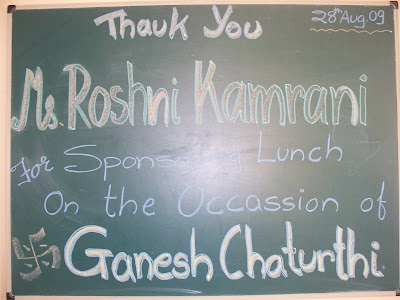 Thank You
28th Aug. 09
Ms. Roshni Kamrani
For Sponsoring Lunch
On the Occassion of
Ganesh Chaturthi.